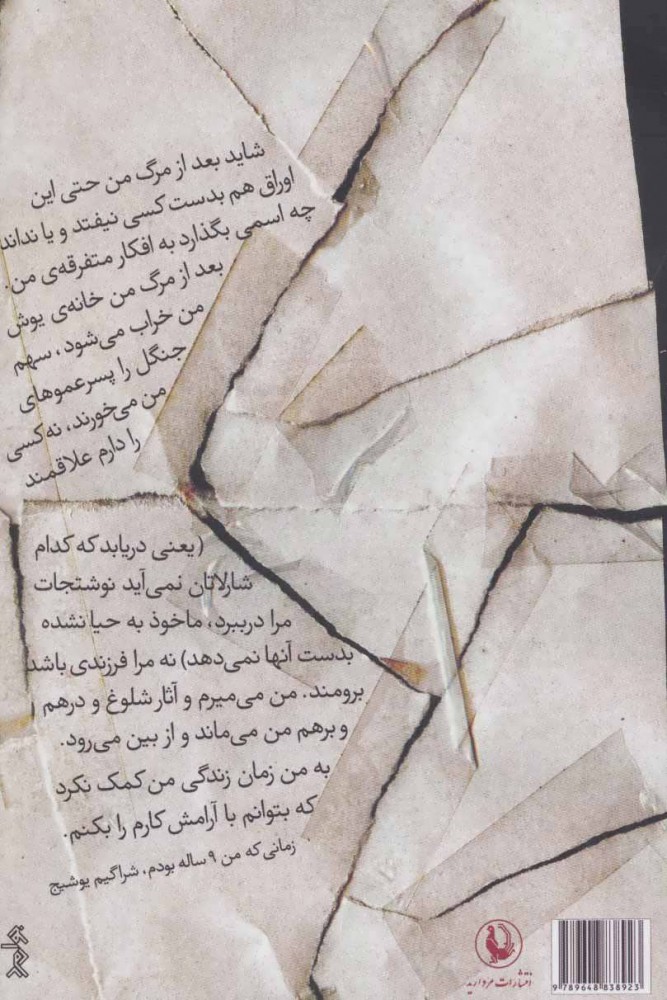 شاید بعد از مرگ من حتی این
اوراق هم بدست کسی نیفتد و یا نداند
چه اسمی بگذارد به افکار متفرقه‌ی من.
بعد از مرگ من خانه‌ی یوش
من خراب می‌شود، سهم
جنگل را پسرعموهای
من می‌خورند، نه کسی
را دارم علاقمند
(یعنی دریابد که کدام
شارلاتان نمی‌آید نوشتجات
مرا درببرد، ماخوذ به حیا نشده
بدست آنها نمی‌دهد) نه مرا فرزندی باشد
برومند. من می‌میرم و آثار شلوغ و درهم
و برهم من می‌ماند و از بین می‌رود.
به من زمان زندگی من کمک نکرد
که بتوانم با آرامش کارم را بکنم.
زمانی که من ۹ ساله بودم، شراگیم یوشیج
انتشارات مروارید
9 789648 838923